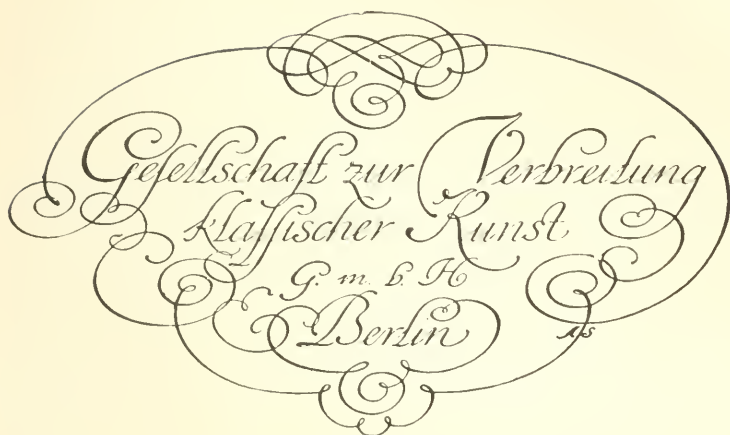 Geſellschaft zur Verbreitung
klaſſischer Kunst
G. m. b. H
Berlin
AS